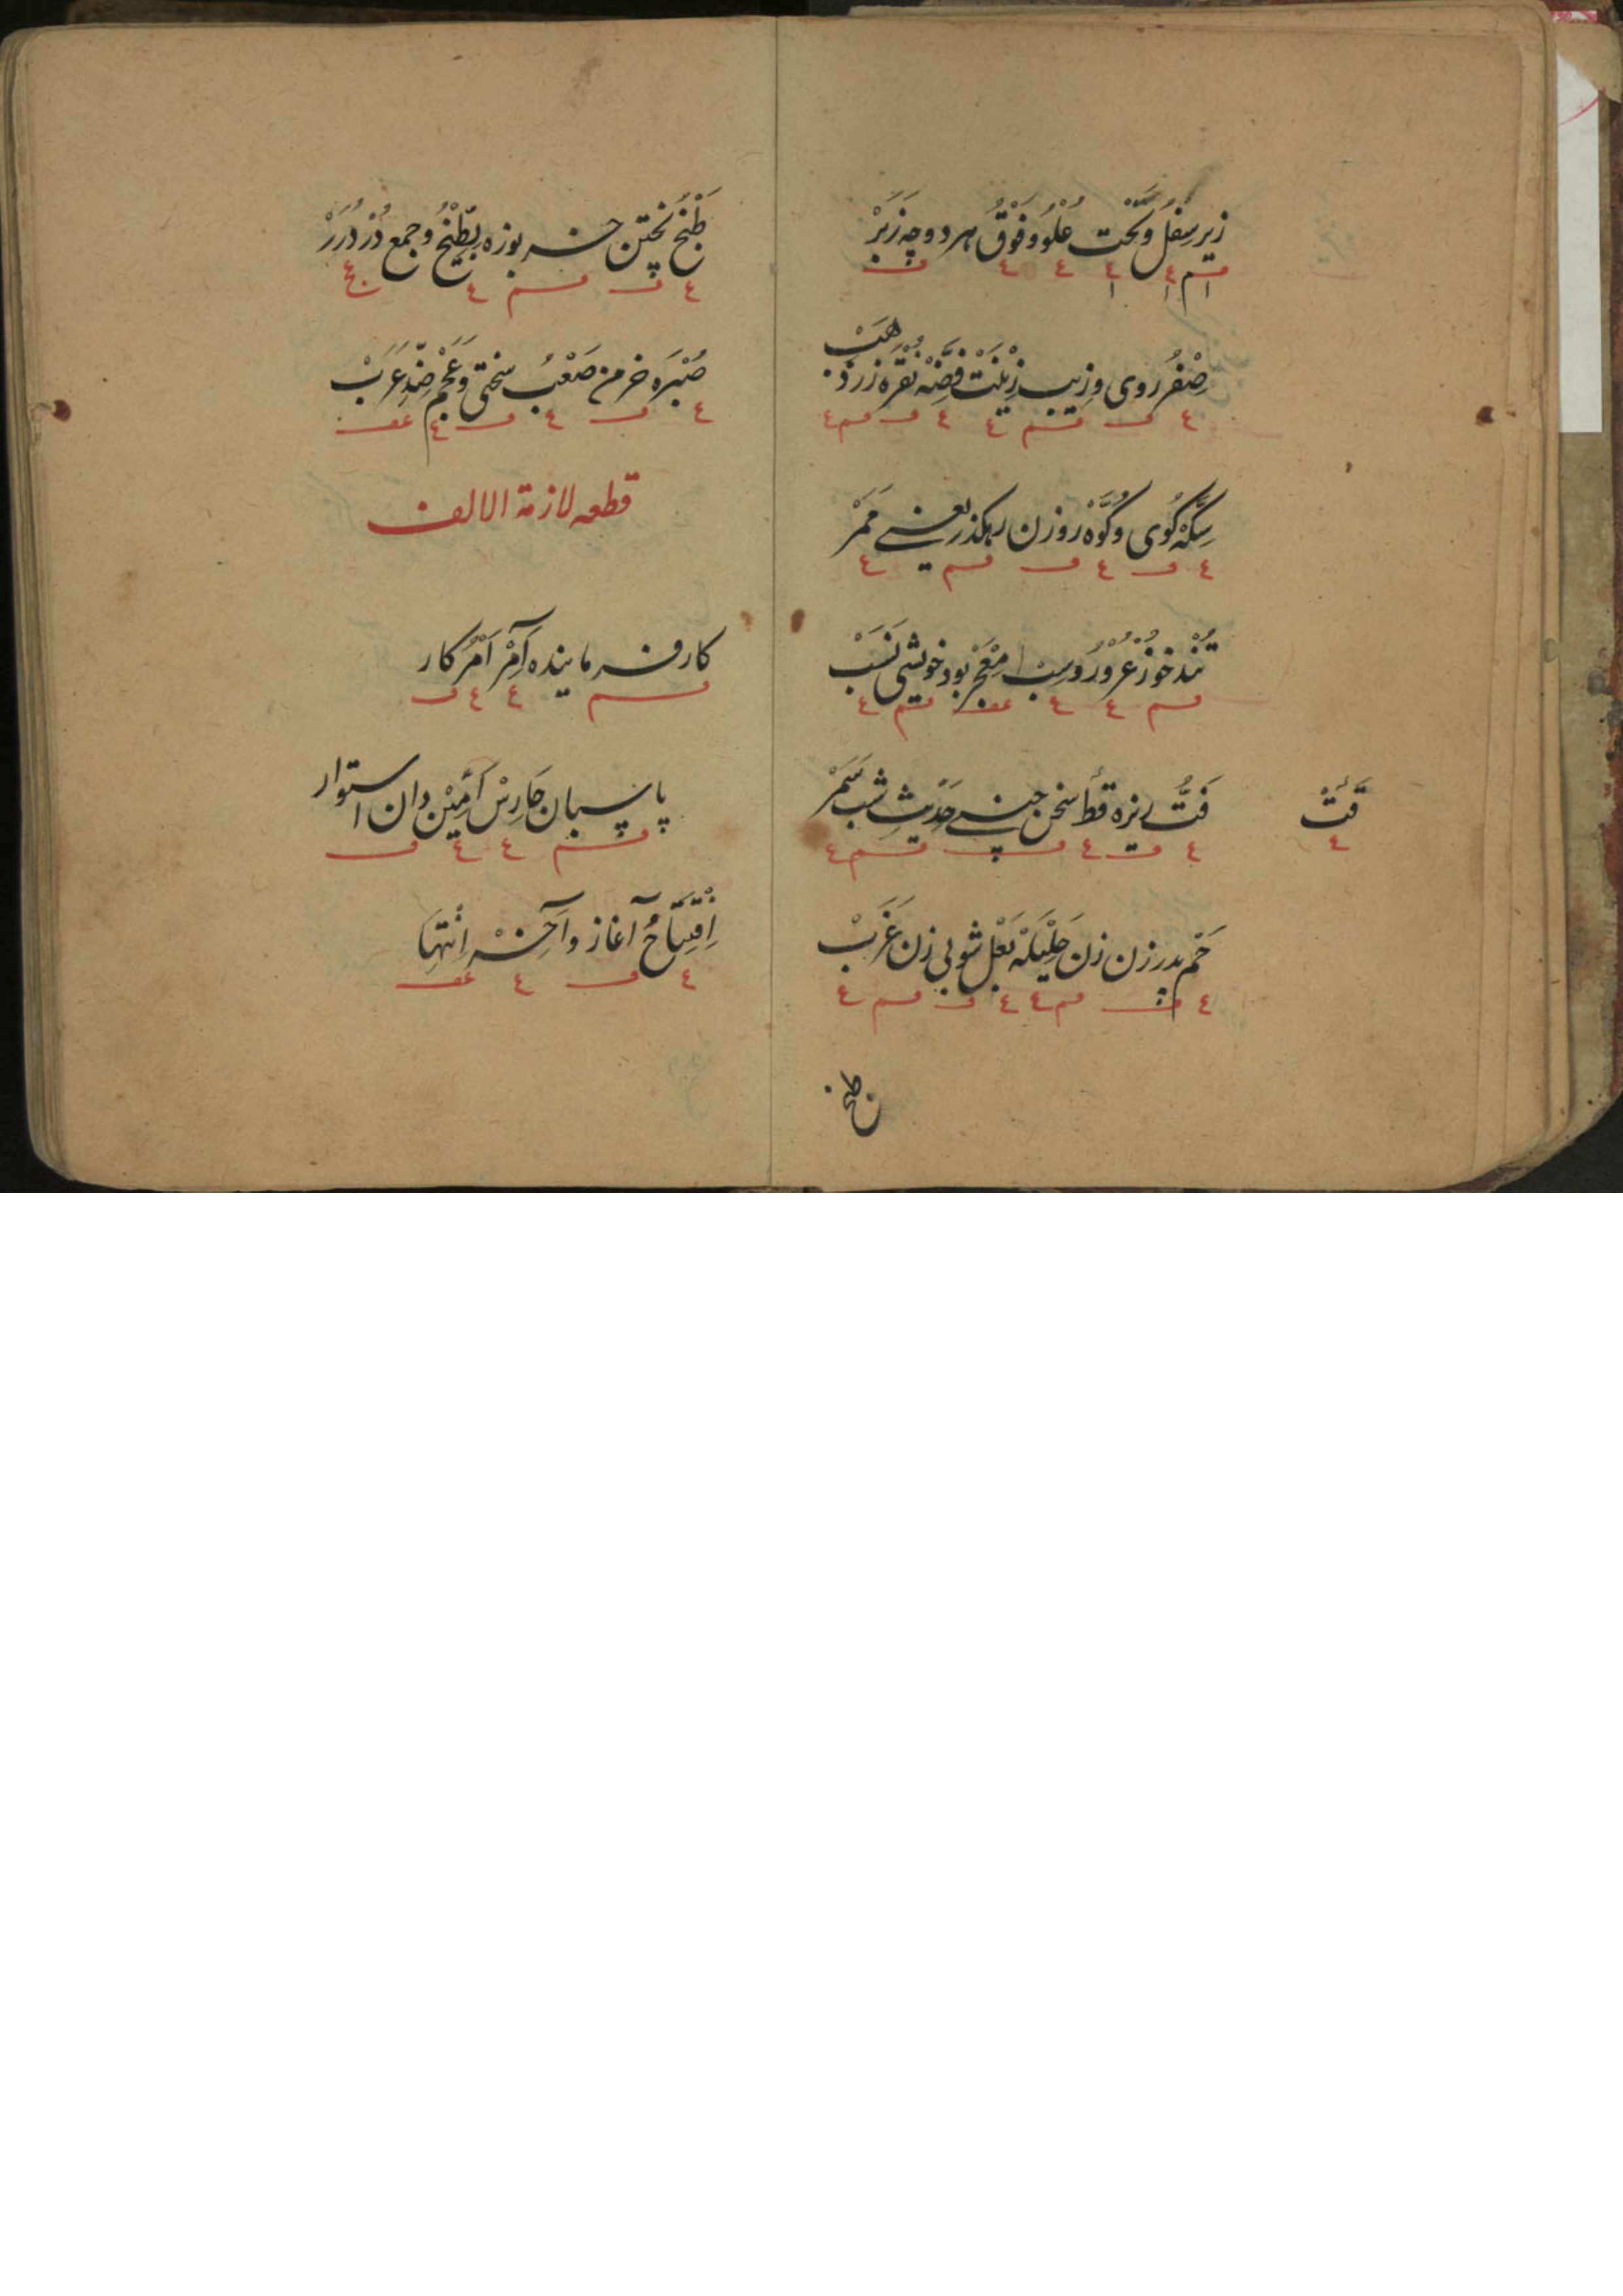 زیر سُفْلُ و تَحْت عُلْوُ و فَوْقُ هر دو چه زَبَرْ
صُفْرُ روی و زیب زِیْنَتْ فِضَّهْ نُقْرَه زر ذَهَبْ
سِکَّهْ کُوی و کُوَّهْ روزن رهکذر یعنی مَمَرّ
تُنْدخو غُرُوْرُ و مِعْجَرْ بود خویشی نَسَبْ
فَتُّ ریزه قطُّ سخن چینی حَدِیْثِ شب سَمَرْ
قَتْ
٤
حَم پدر زن زن حَلِیْلَهْ بَعْل شو بی زن عَزَبْ
طبخ
طَبْخُ پختن خربوزه بِطِّیْخُ و جمع دُرّ دُرَرْ
صُبْرَه خرمن صَعْبُ سختی و عَجَمْ ضِدِّ عَرَبْ
قطعه لازمة الالف
کار فرماینده آمِرْ اَمْرُ کار
پاسبان حَارِسْ اَمِیْن دان استوار
اِفْتِتَاحُ آغاز و آخِرْ اِنْتِهَا